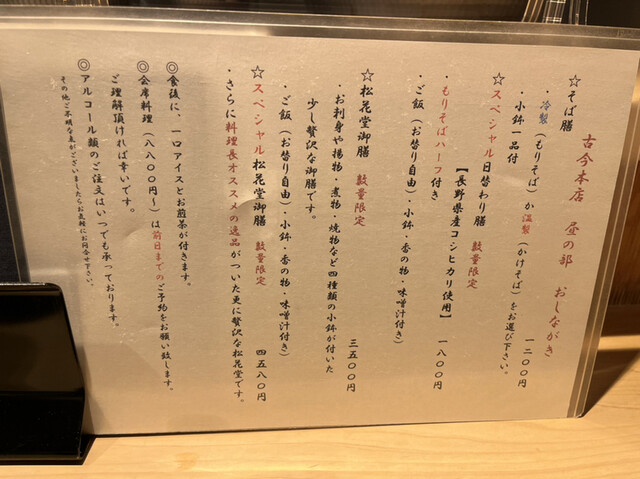 古今本店 昼の部 おしながき
☆そば膳 一二〇〇円
・冷製（もりそば）か温製（かけそば）をお選び下さい。
・小鉢一品付
☆スペシャル日替わり膳 数量限定 一八〇〇円
【長野県産コシヒカリ使用】
・もりそばハーフ付き
・ご飯（お替り自由）・小鉢・香の物・味噌汁付き）
☆松花堂御膳 数量限定 三五〇〇円
・お刺身や揚物・煮物・焼物など四種類の小鉢が付いた
少し贅沢な御膳です。
・ご飯（お替り自由）・小鉢・香の物・味噌汁付き）
☆スペシャル松花堂御膳 数量限定 四五八〇円
・さらに料理長オススメの逸品がついた更に贅沢な松花堂です。
◎食後に、一口アイスとお煎茶が付きます。
◎会席料理（八八〇〇円〜）は前日までのご予約をお願い致します。
ご理解頂ければ幸いです。
◎アルコール類のご注文はいつでも承っております。
その他ご不明な点がございましたらお気軽にお問合せ下さい。